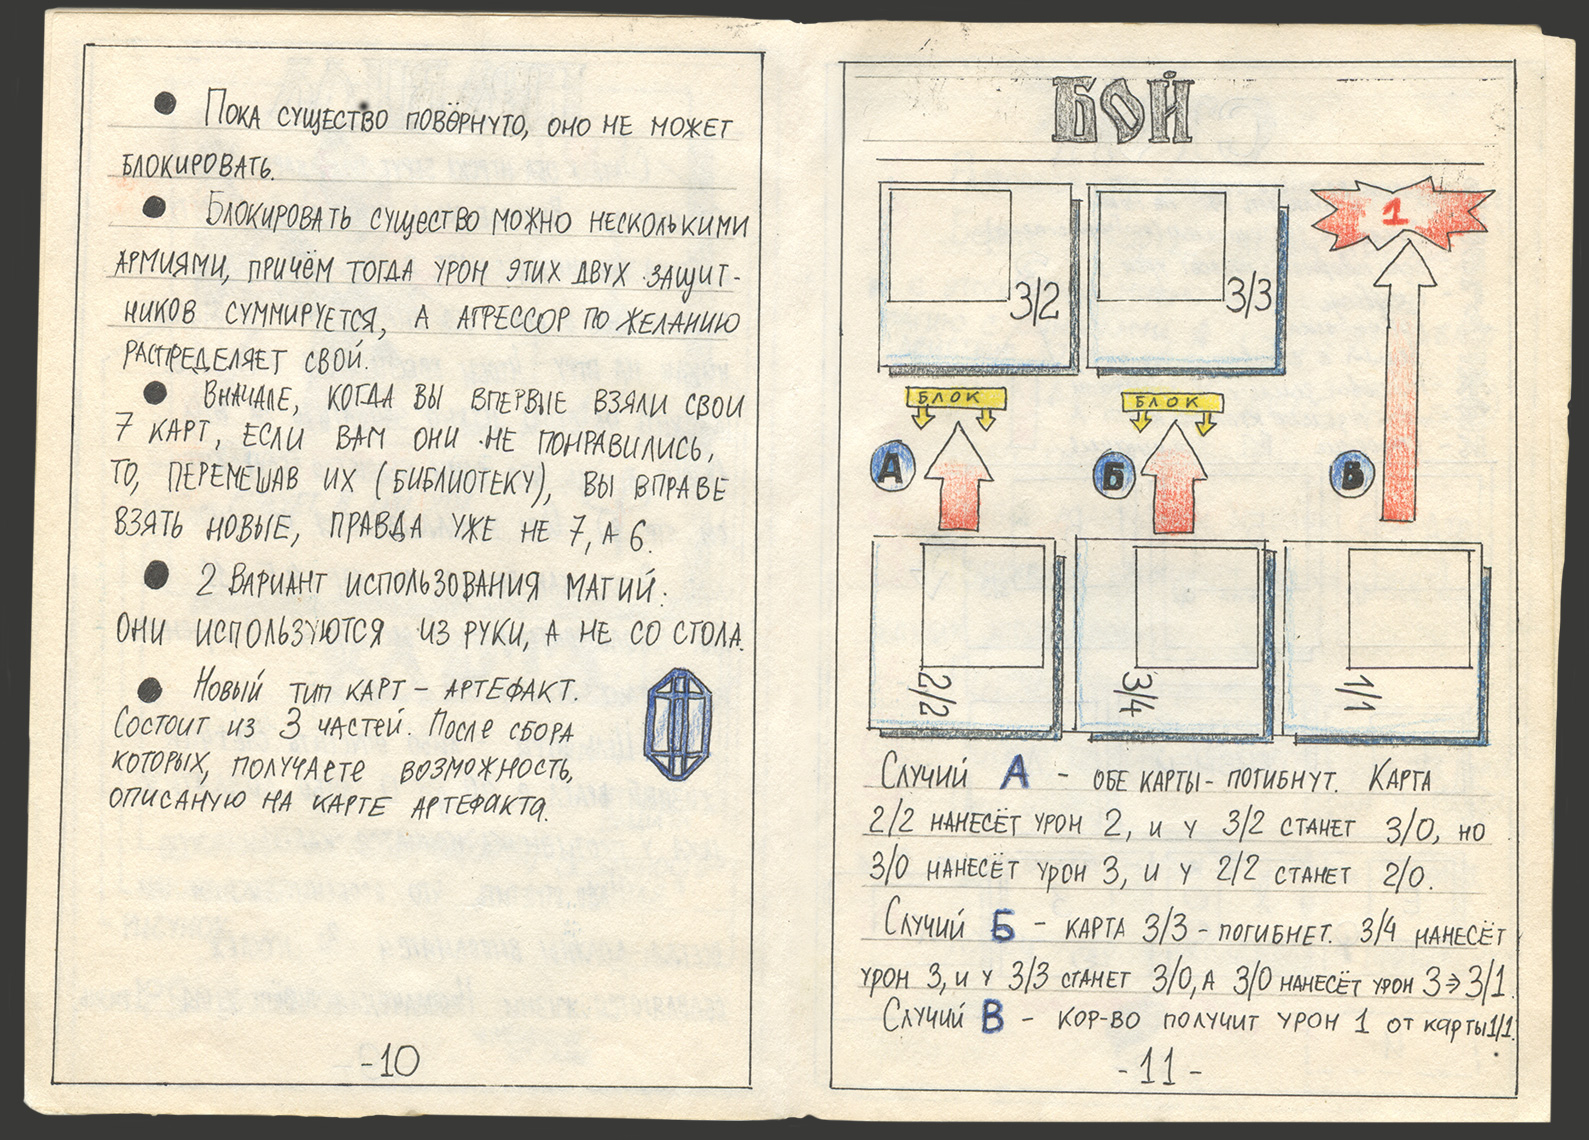 ● Пока существо повёрнуто, оно не может
блокировать.
● Блокировать существо можно несколькими
армиями, причём тогда урон этих двух защит-
ников суммируется, а агрессор по желанию
распределяет свой.
● Вначале, когда вы впервые взяли свои
7 карт, если вам они не понравились,
то, перемешав их (библиотеку), вы вправе
взять новые, правда уже не 7, а 6.
● 2 Вариант использования магий.
Они используются из руки, а не со стола.
● Новый тип карт – артефакт.
Состоит из 3 частей. После сбора
которых, получаете возможность,
описаную на карте артефакта.
-10
БОЙ
3/2
3/3
1
БЛОК
БЛОК
А
Б
В
2/2
3/4
1/1
Случий А - обе карты - погибнут. Карта
2/2 нанесёт урон 2, и у 3/2 станет 3/0, но
3/0 нанесёт урон 3, и у 2/2 станет 2/0.
Случий Б - карта 3/3 - погибнет. 3/4 нанесёт
урон 3, и у 3/3 станет 3/0, а 3/0 нанесёт урон 3⇒3/1.
Случий В - кор-во получит урон 1 от карты 1/1.
-11-